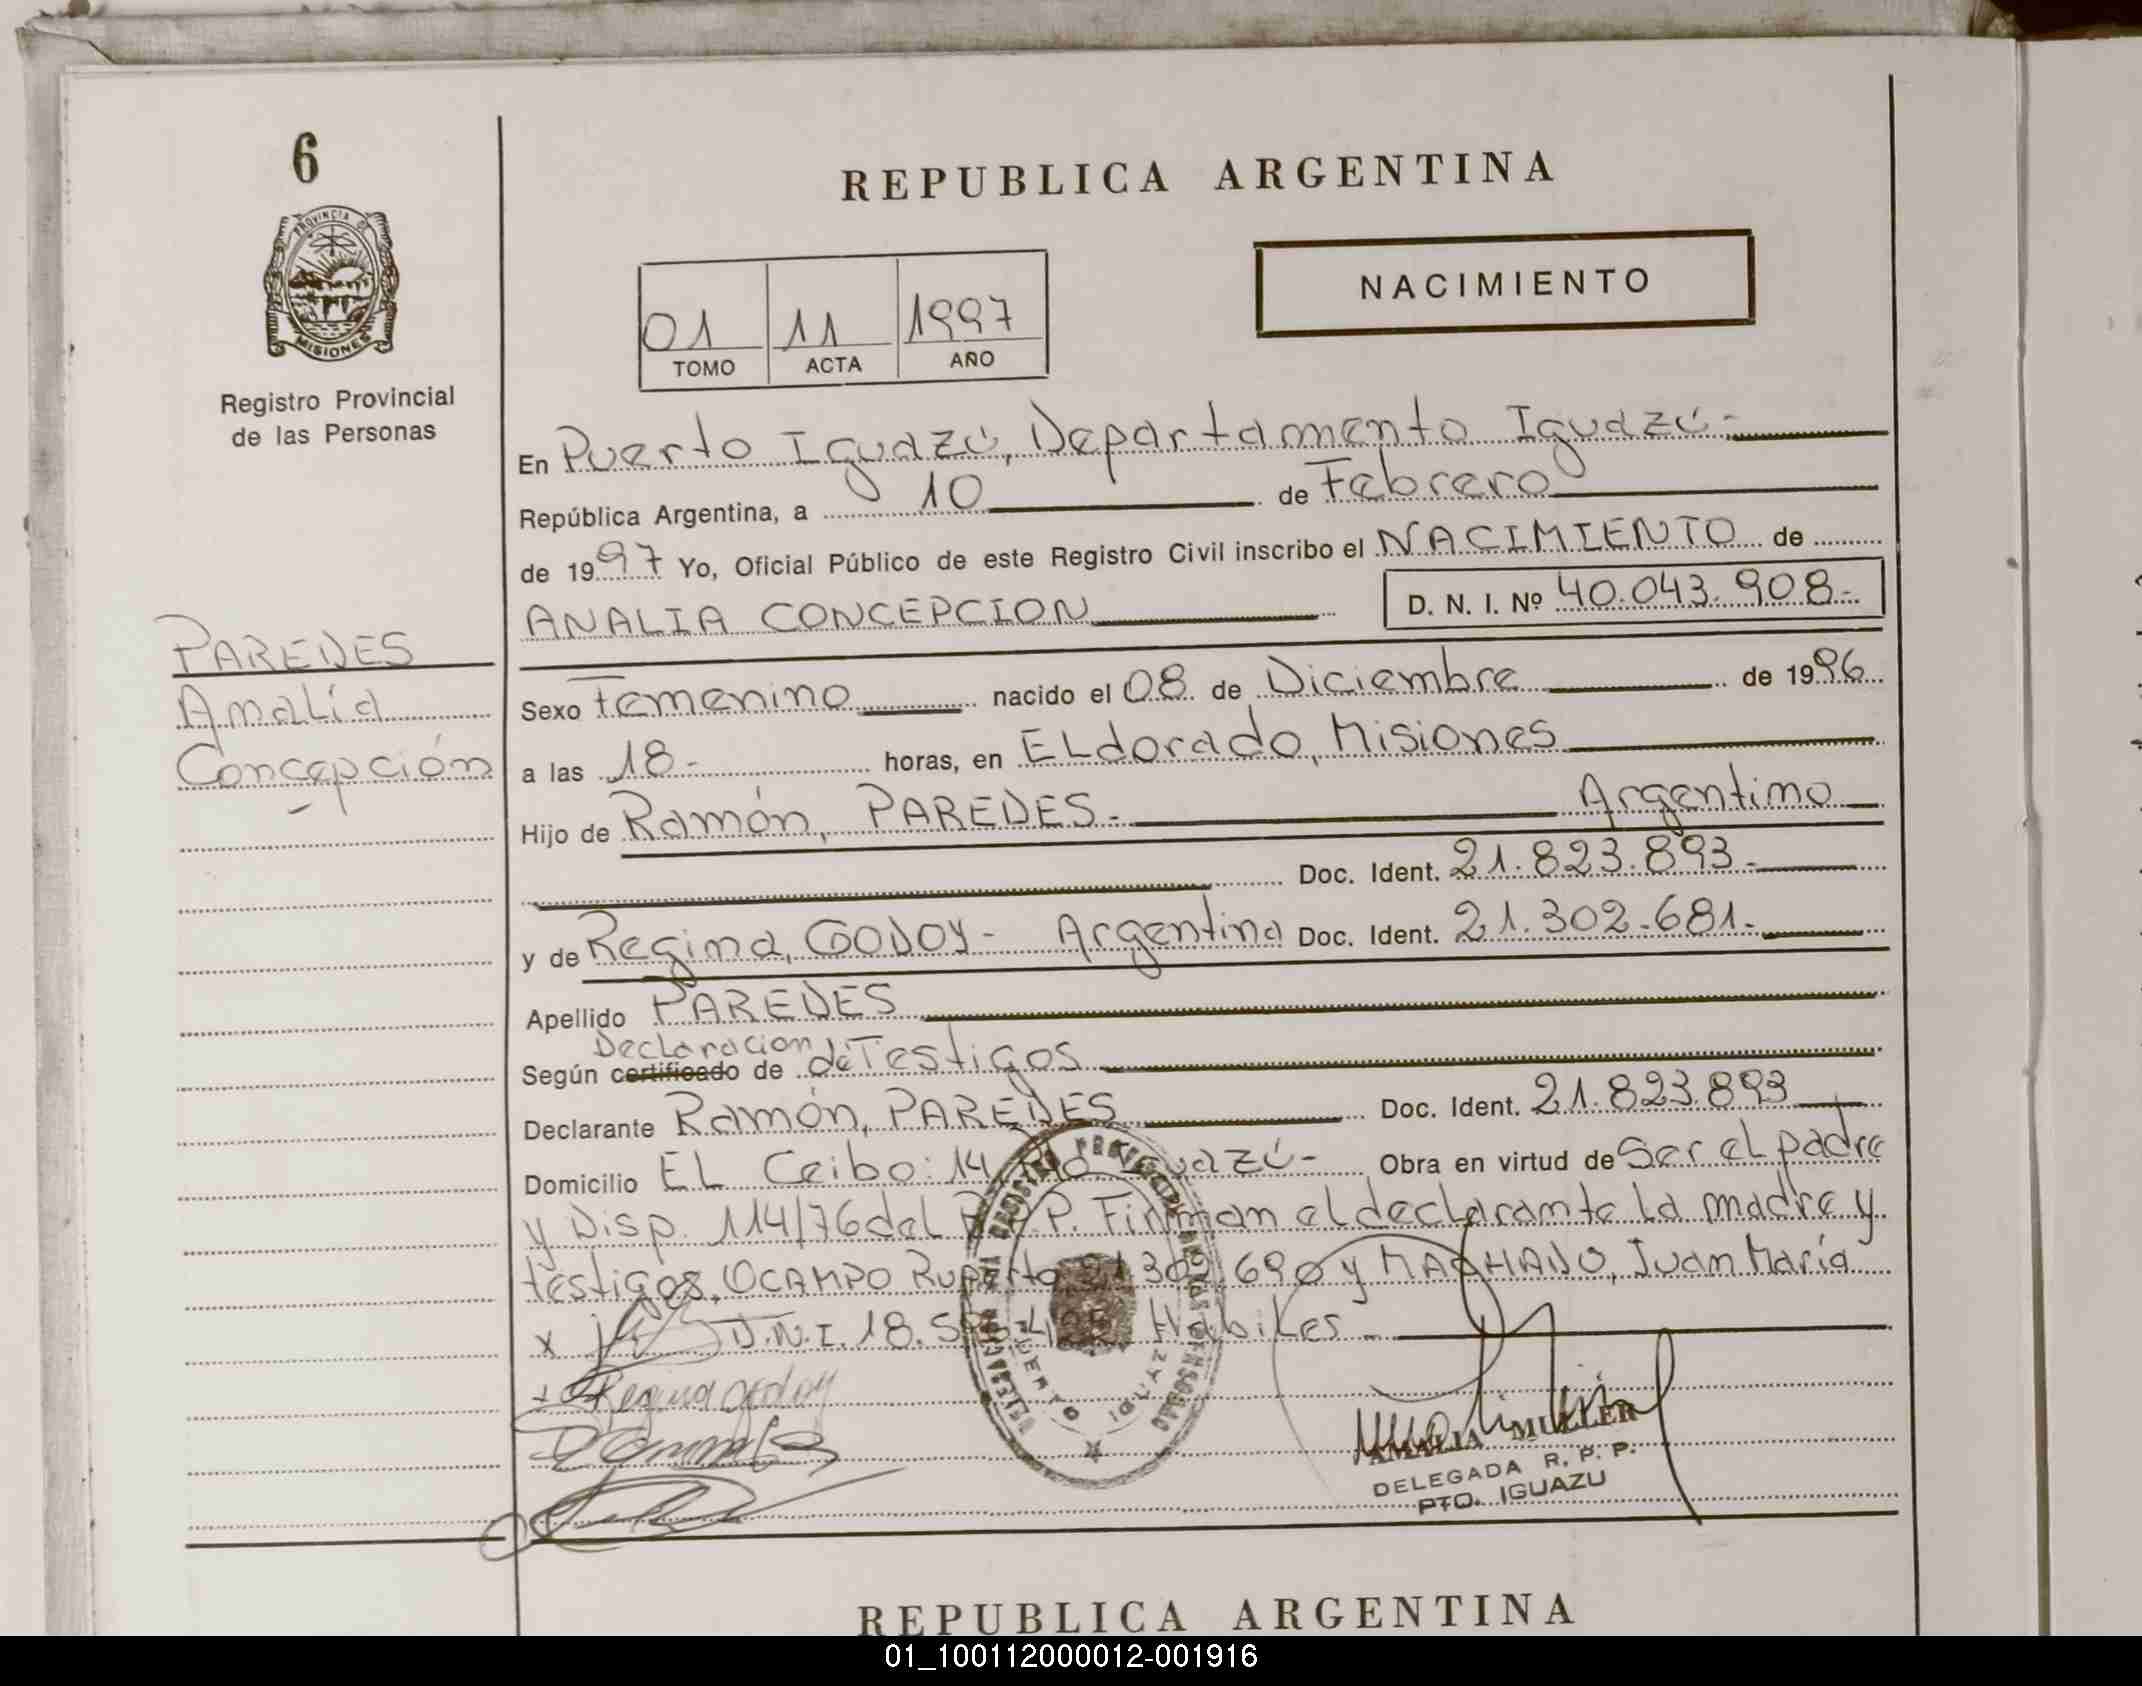 6
PROVINCIA DE
MISIONES
Registro Provincial
de las Personas
REPUBLICA ARGENTINA
NACIMIENTO
01 11 1997
TOMO ACTA AÑO
En Puerto Iguazú, Departamento Iguazú-
República Argentina, a 10 de Febrero
de 1997 Yo, Oficial Público de este Registro Civil inscribo el NACIMIENTO de
ANALIA CONCEPCION D. N. I. Nº 40.043.908-
PAREDES
Analía
Concepción
Sexo Femenino nacido el 08 de Diciembre de 1996
a las 18- horas, en ELdorado, Misiones
Hijo de Ramón, PAREDES- Argentino
Doc. Ident. 21.823.893-
y de Regina, GODOY- Argentina Doc. Ident. 21.302.681-
Apellido PAREDES
Declaracion
Según certificado de de Testigos
Declarante Ramón, PAREDES Doc. Ident. 21.823.893
Domicilio EL Ceibo: 14 Pto Iguazú- Obra en virtud de Ser el padre
y Disp. 114/76 del R.P.P. Firman el declarante la madre y
testigos, OCAMPO Ruperto 21.302.690 y MACHADO, Juan María
x D.N.I. 18. Hábiles-
Regina Godoy
PUERTO IGUAZU
AMALIA MULLER
DELEGADA R. P. P.
PTO. IGUAZU
REPUBLICA ARGENTINA
01_100112000012-001916